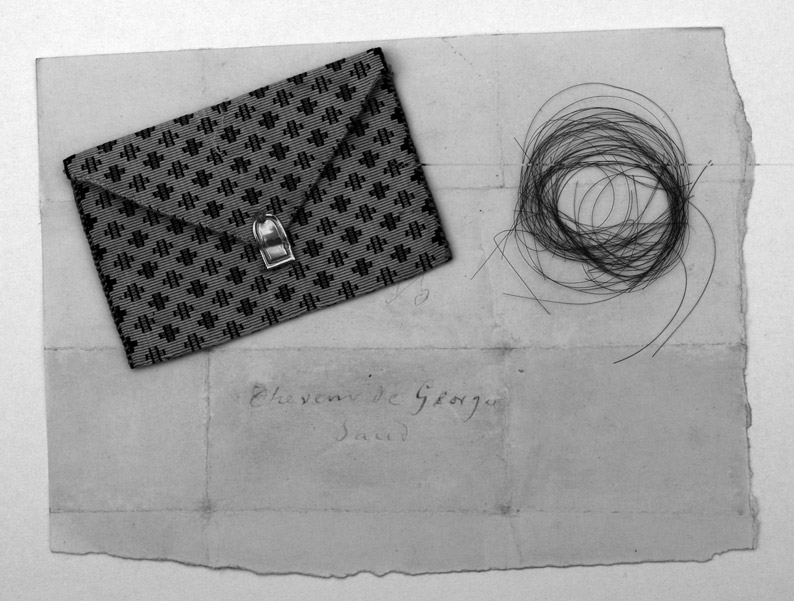 Cheveux de George
Sand